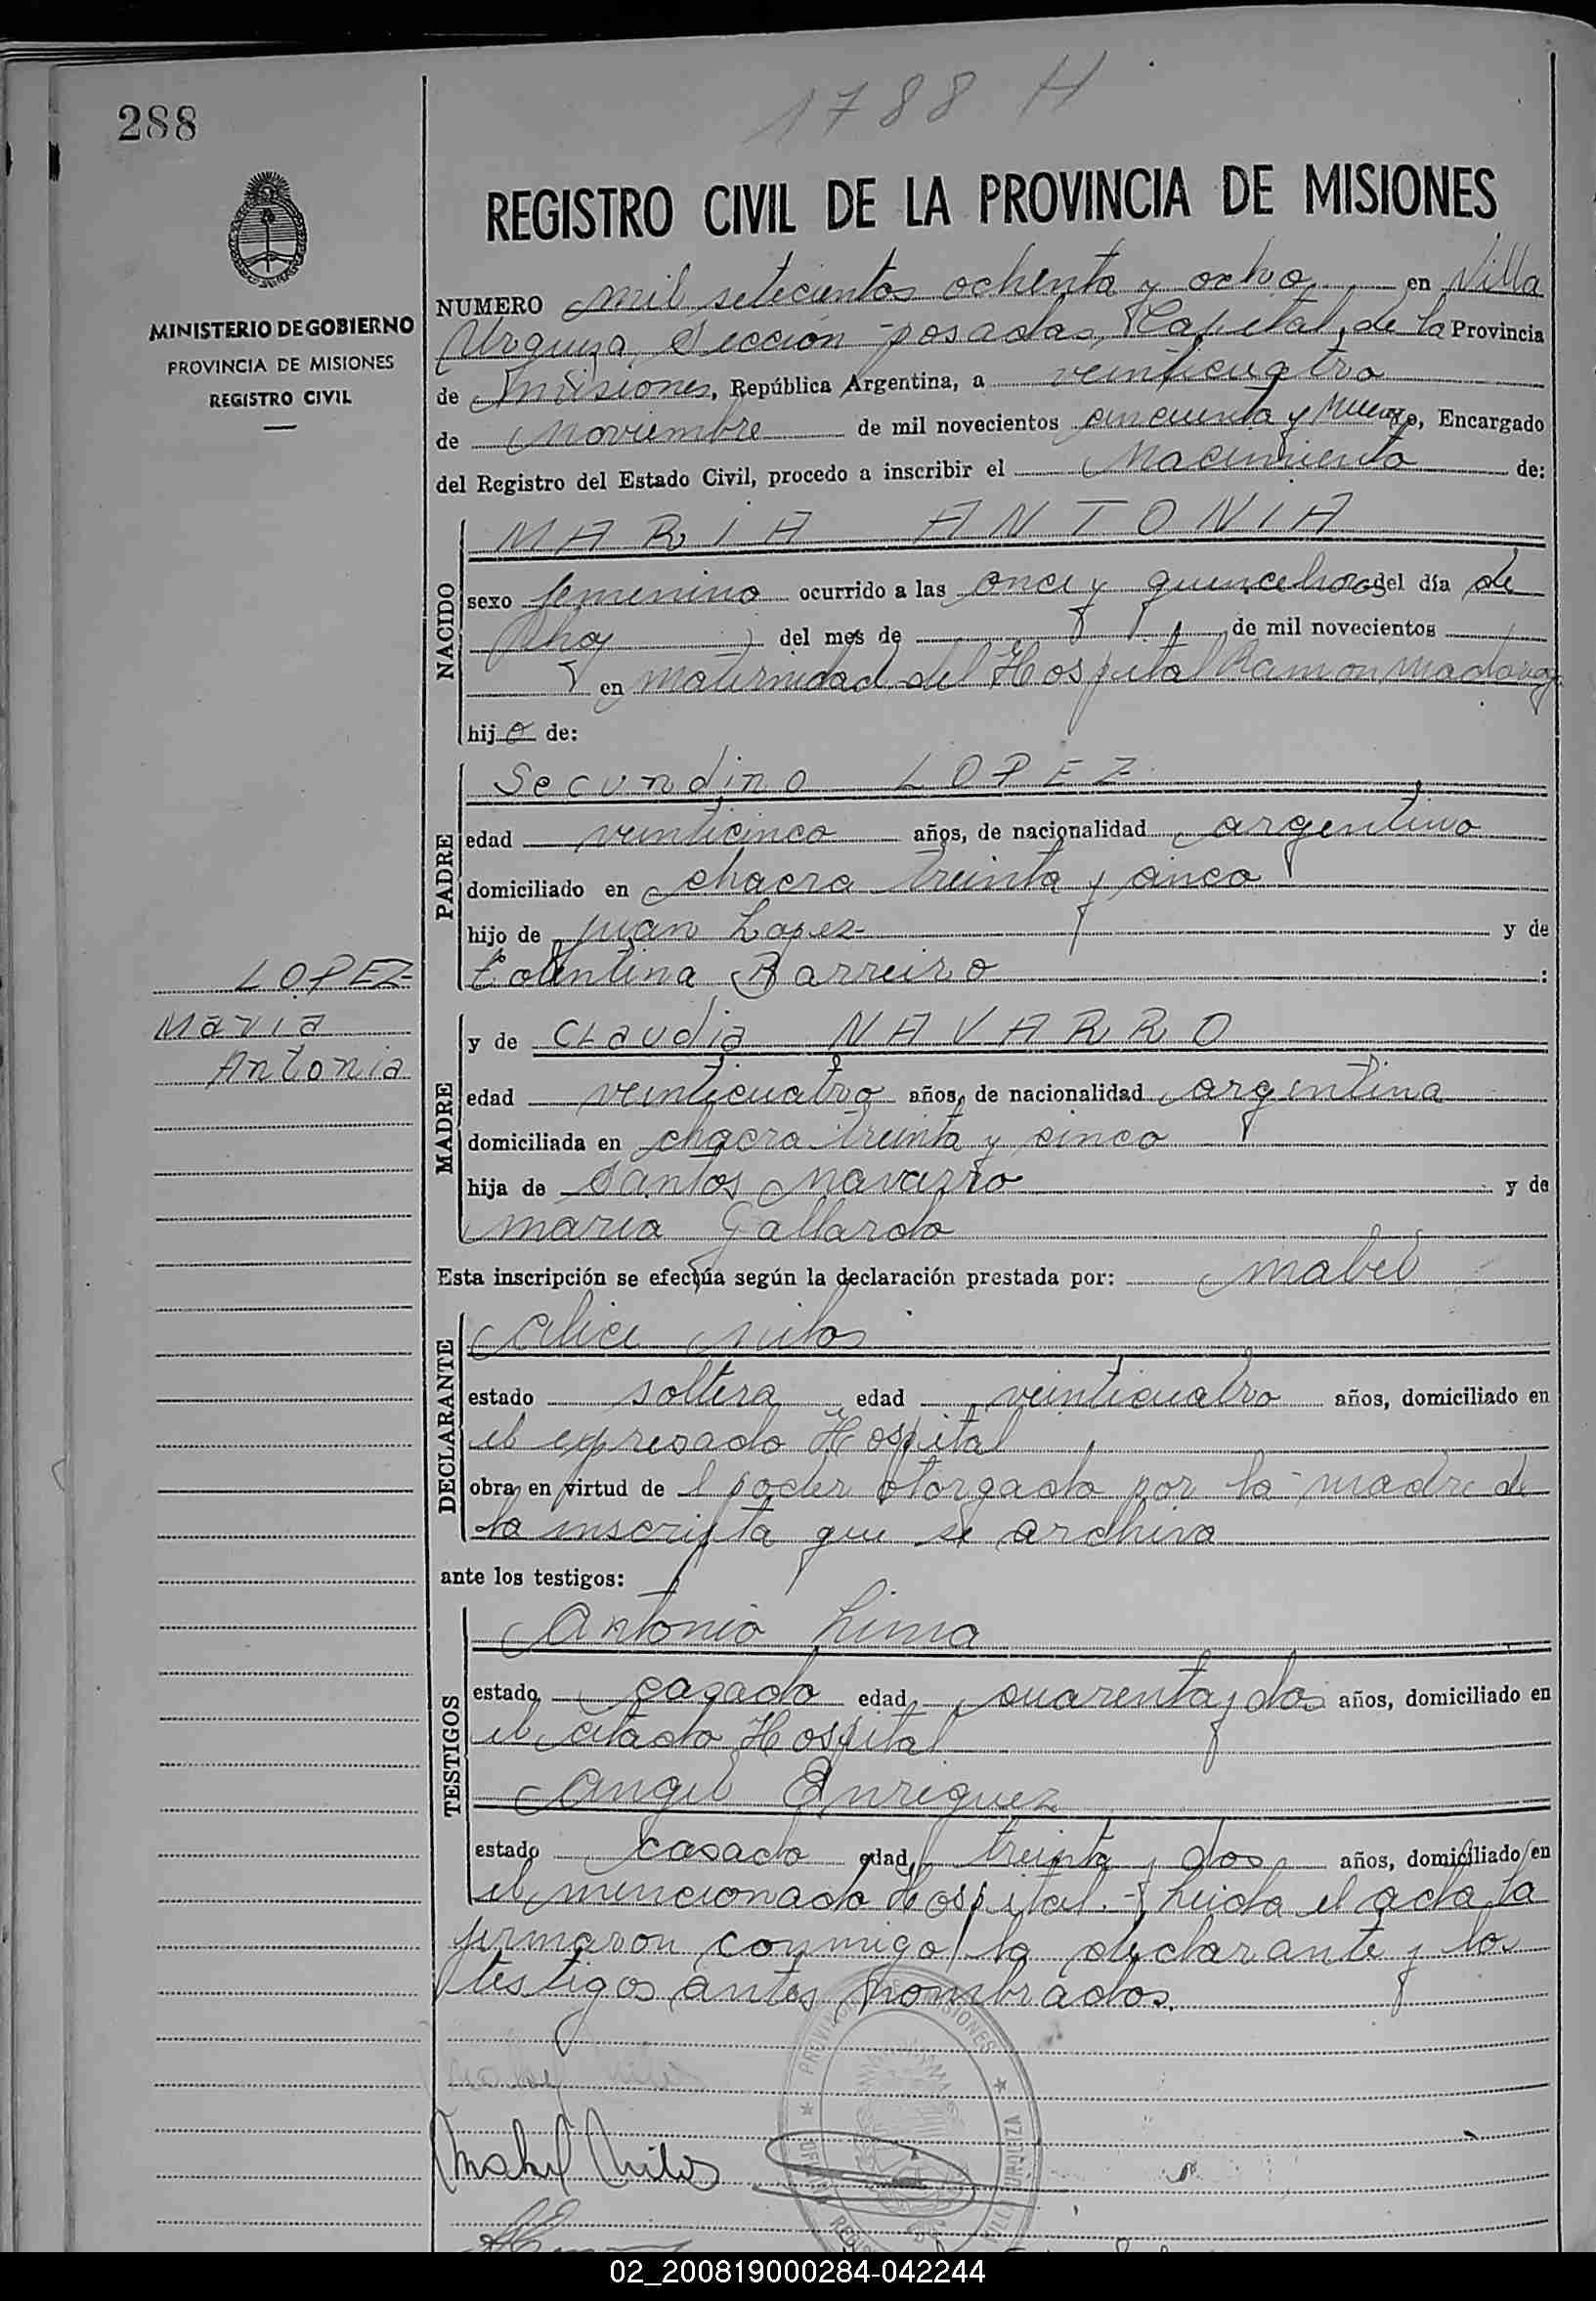 288
1788 H
REGISTRO CIVIL DE LA PROVINCIA DE MISIONES
MINISTERIO DE GOBIERNO
PROVINCIA DE MISIONES
REGISTRO CIVIL
NUMERO mil setecientos ochenta y ocho en Villa
Urquiza, Sección posadas, Capital, de la Provincia
de Misiones, República Argentina, a veinticuatro
de noviembre de mil novecientos cincuenta y nueve, Encargado
del Registro del Estado Civil, procedo a inscribir el Nacimiento de:
NACIDO
MARIA ANTONIA
sexo femenino ocurrido a las once y quince horas del día de
hoy del mes de de mil novecientos
en maternidad del Hospital Ramon Madariaga
hijo de:
PADRE
Secundino LOPEZ
edad veinticinco años, de nacionalidad argentino
domiciliado en chacra treinta y cinco
hijo de Juan Lopez y de
Tolentina Barreiro :
LOPEZ
Maria
Antonia
MADRE
y de CLaudia NAVARRO
edad veinticuatro años, de nacionalidad argentina
domiciliada en chacra treinta y cinco
hija de Santos Navarro y de
maria Gallardo
Esta inscripción se efectúa según la declaración prestada por: mabel
DECLARANTE
estado soltera edad veinticuatro años, domiciliado en
el expresado Hospital
obra en virtud de l poder otorgado por la madre de
la inscripta que se archiva
ante los testigos:
TESTIGOS
Antonio Lima
estado casado edad cuarenta y dos años, domiciliado en
el citado Hospital
Angel Enriquez
estado casado edad treinta y dos años, domiciliado en
el mencionado Hospital.- Leida el acta la
firmaron conmigo la declarante y los
testigos antes nombrados.
PROVINCIA DE MISIONES
VILLA URQUIZA
02_200819000284-042244